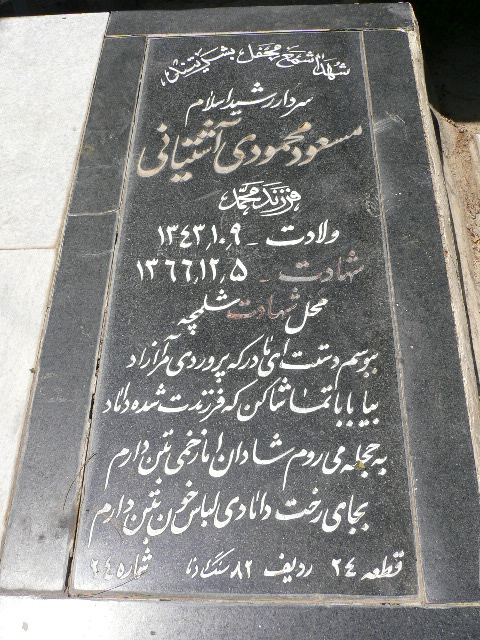 شهدا شمع محفل بشریتند
سردار رشید اسلام
مسعود محمودی آشتیانی
فرزند محمد
ولادت ـ ۱۳۴۳٫۱۰٫۹
شهادت ـ ۱۳۶۶٫۱۲٫۵
محل شهادت شلمچه
ببوسم دستت ای مادر که پروردی مرا آزاد
بیا بابا تماشا کن که فرزندت شده داماد
به حجله می روم شادان اما زخمی بتن دارم
بجای رخت دامادی لباس خون بتن دارم
قطعه ۲۴ ردیف ۸۲ شماره ۲۴